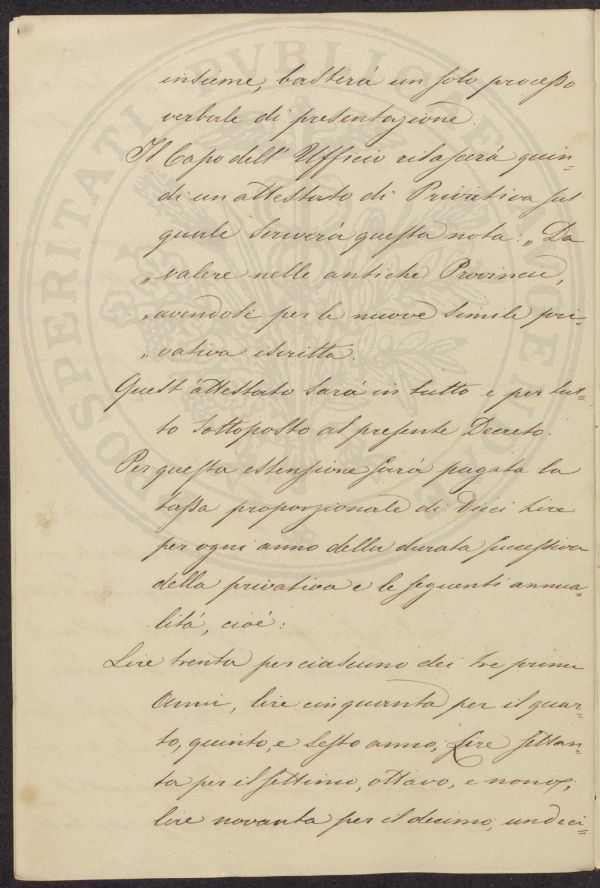 insieme, basterà un solo processo
verbale di presentazione.
Il Capo dell' Ufficio rilascerà quin=
di un attestato di Privativa sul
quale scriverà questa nota: „ Da
„ valere nelle antiche Provincie,
„ avendosi per le nuove simile pri=
„ vativa iscritta.
Quest'attestato sarà in tutto e per tut=
to sottoposto al presente Decreto.
Per questa estensione sarà pagata la
tassa proporzionale di Dieci Lire
per ogni anno della durata successiva
della privativa e le seguenti annua=
lità, cioè:
Lire trenta per ciascuno dei tre primi
Anni, lire cinquanta per il quar=
to, quinto, e sesto anno; Lire settan=
ta per il settimo, ottavo, e nono;
lire novanta per il decimo, undeci=